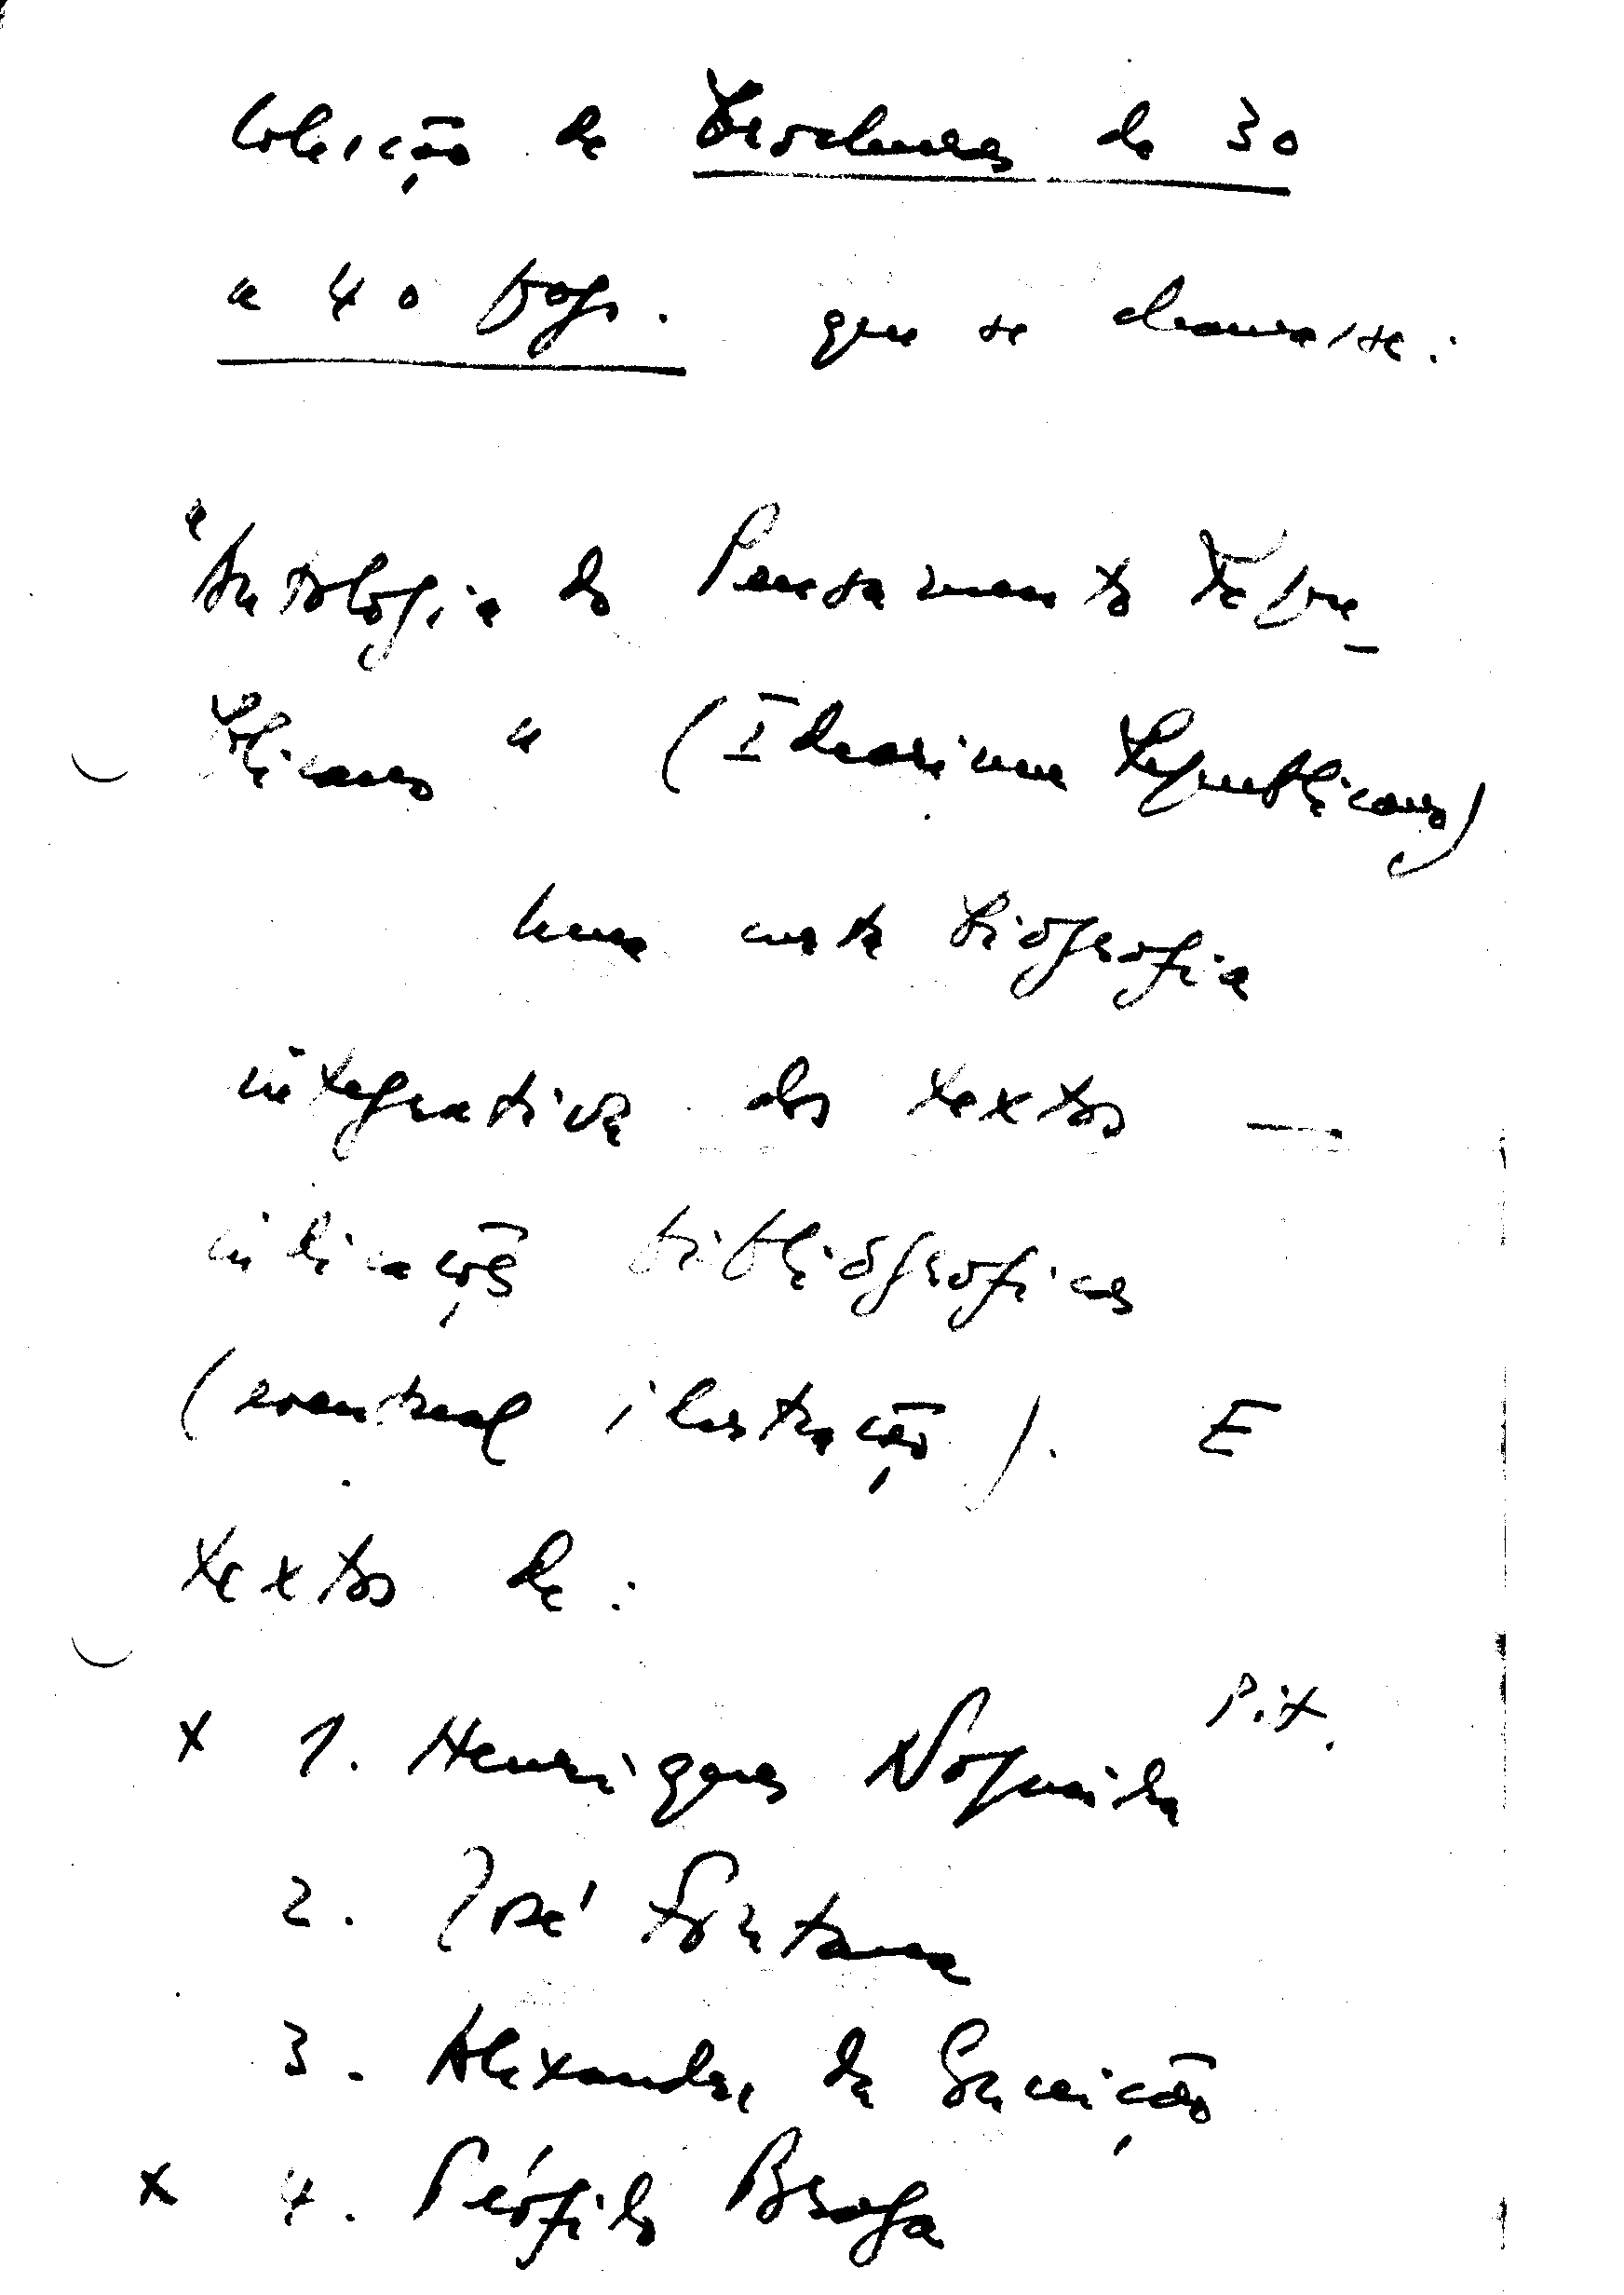 Colecção de Brochuras de 30
a 40 págs. que se chamasse:
"Antologia do Pensamento Repu-
blicano" (Ideário Republicano)
Uma curta biografia
integrativa dos textos —
indicações bibliográficas
(eventual ilustração). E
textos de:
x 1. Henriques Nogueira
2. José Fontana
3. Alexandre da Conceição
x 4. Teófilo Braga